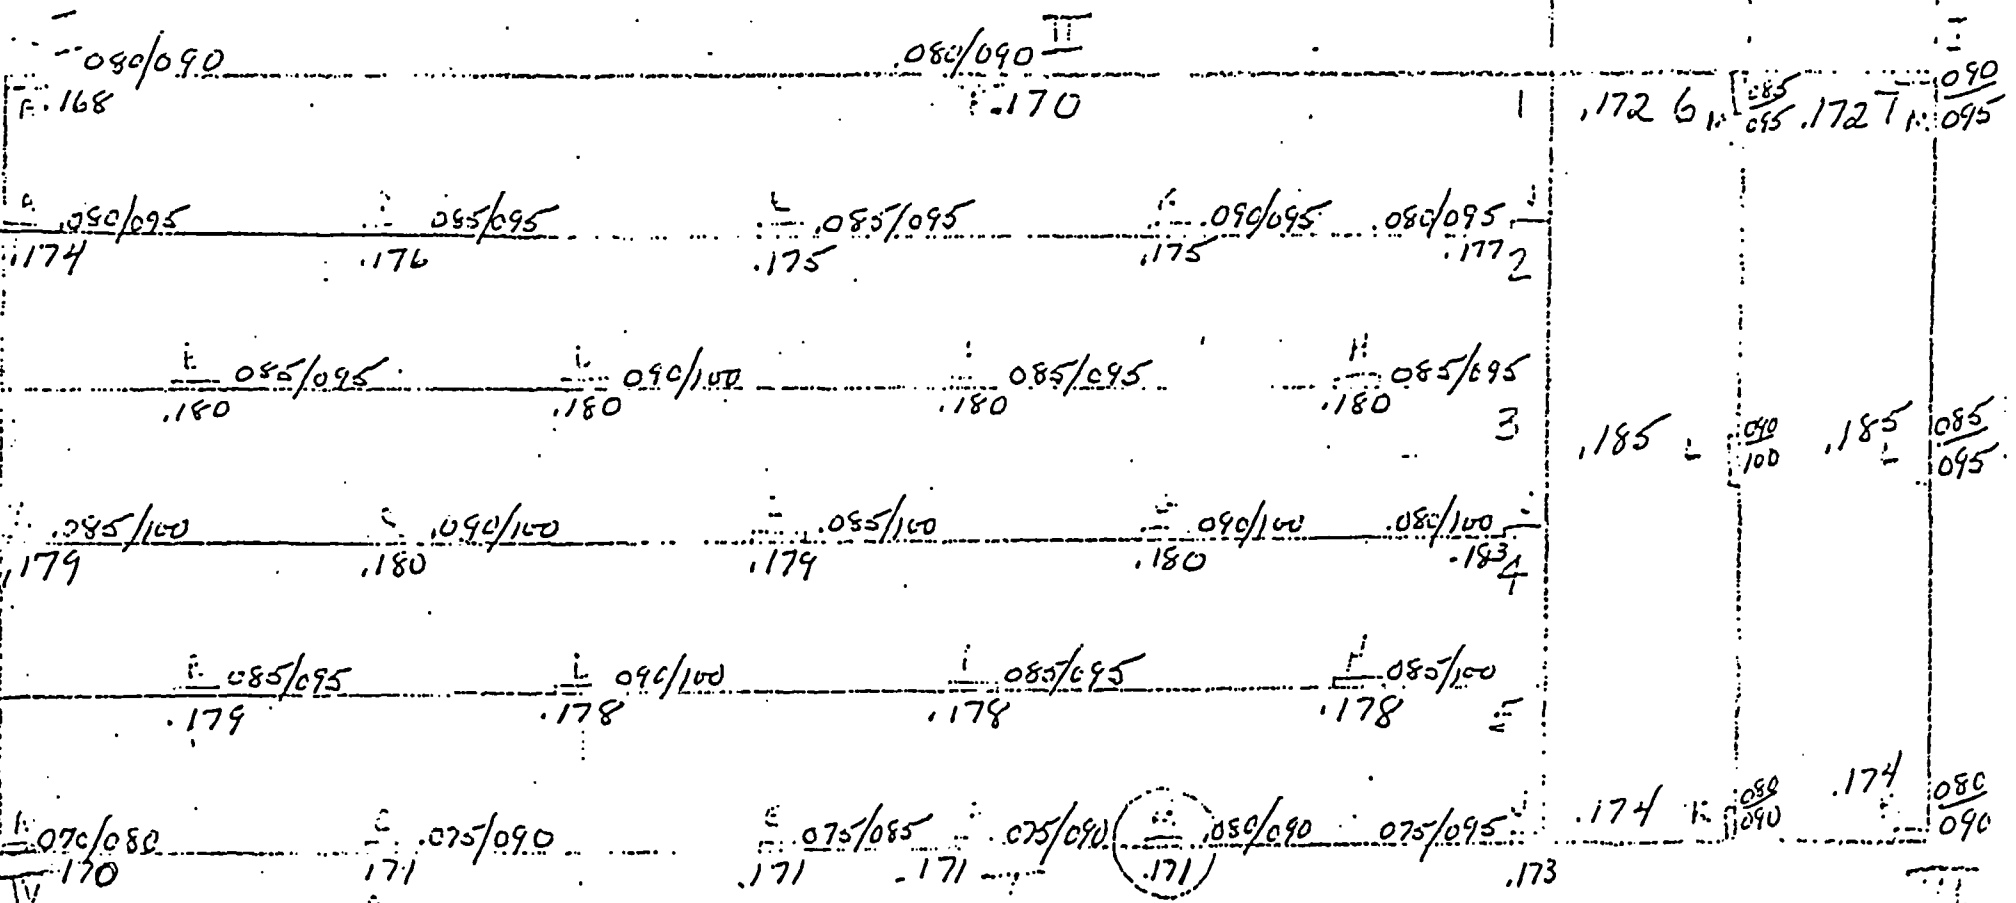 II
080/090 .080/090 090/095
.168 .170 1 .172 6 085/095 .172 7
.080/095 085/095 .085/095 .090/095 .080/095
.174 .176 .175 .175 .177 2
085/095 090/100 085/095 H 085/095
.180 .180 .180 .180 3
.185 L 090/100 .185 L 085/095
.085/100 .090/100 .085/100 090/100 .080/100
.179 .180 .179 .180 .183 4
085/095 L 090/100 085/095 H 085/100
.179 .178 .178 .178 5
.174 K 080/090 .174 080/090
070/080 C .075/090 075/085 075/090 .080/090 075/095 J
.170 .171 .171 .171 .171 .173
IV